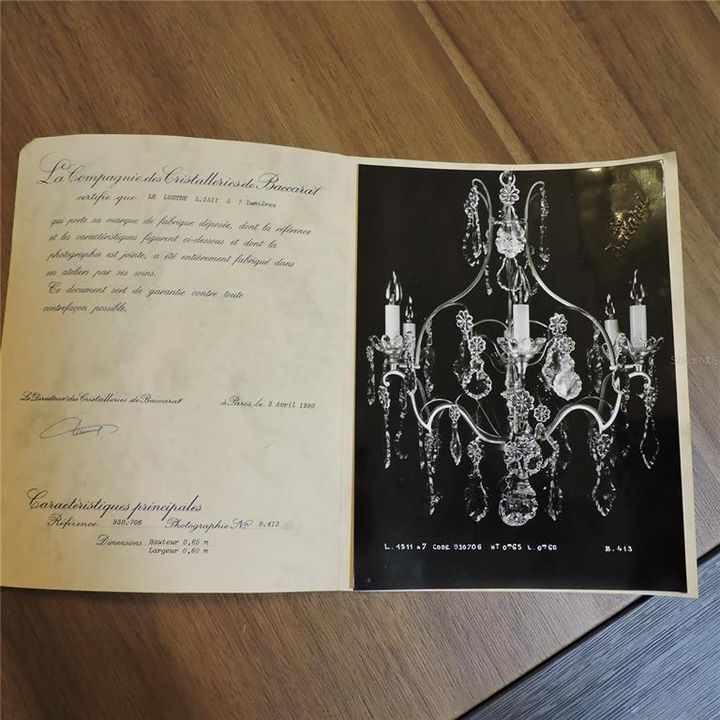 La Compagnie des Cristalleries de Baccarat
certifie que LE LUSTRE L.1511 à 7 lumières
qui porte sa marque de fabrique déposée, dont la référence
et les caractéristiques figurent ci-dessous et dont la
photographie est jointe, a été entièrement fabriqué dans
ses atelier par ses soins.
Ce document sert de garantie contre toute
contrefaçon possible.
Le Directeur des Cristalleries de Baccarat à Paris, le 3 Avril 1990
Caractéristiques principales
Référence 930.706 Photographie No B.413
Dimensions Hauteur 0,65 m
Largeur 0,60 m
L. 1511 à 7 CODE 930706 HT 0m65 L. 0m60 B. 413